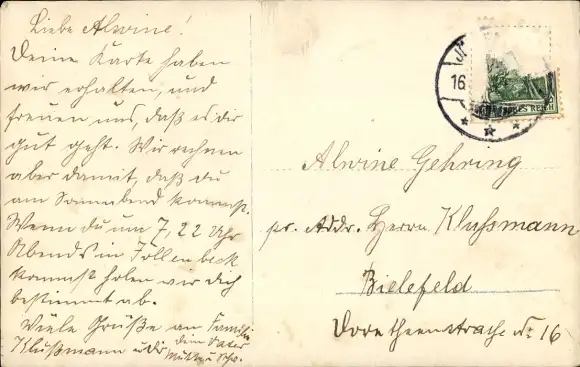 Liebe Alwine!
Deine Karte haben
wir erhalten, und
freuen uns, daß es dir
gut geht. Wir rechnen
aber damit, daß du
am Sonnabend kommst.
Wenn du um 7,22 Uhr
Abends in Jöllenbeck
kommst holen wir dich
bestimmt ab.
Viele Grüße an Familie
Klußmann u. dir dein Vater
Mutter u. Schw.
16
REICH
Alwine Gehring
pr. Addr. Herrn Klussmann
Bielefeld
Dorotheenstraße No 16